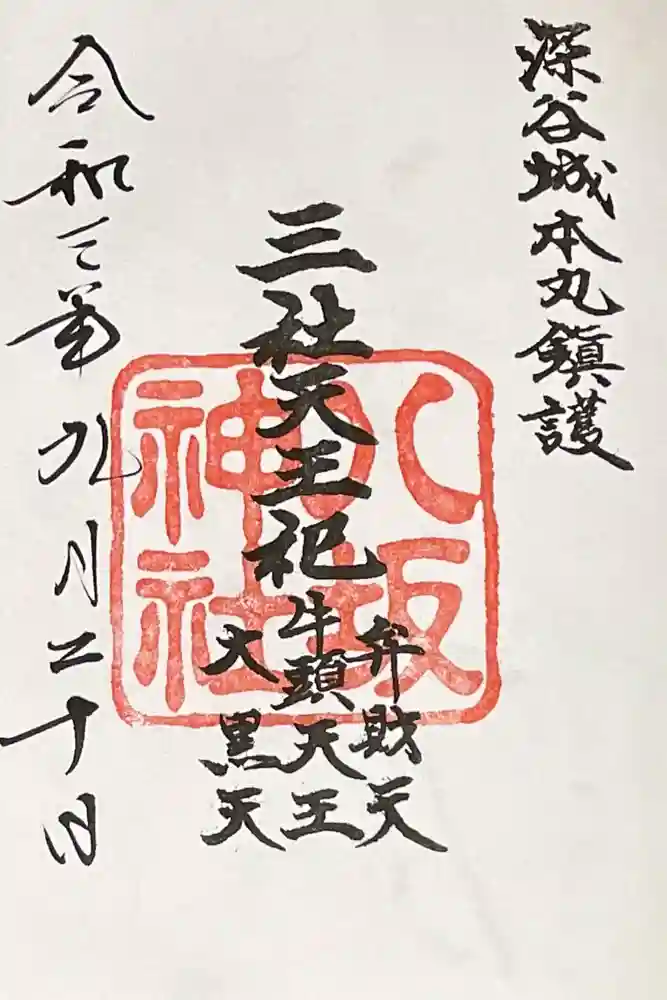 深谷城本丸鎮護
三社天王祀
弁財天
牛頭天王
大黒天
八坂
神社
令和三年九月二十日